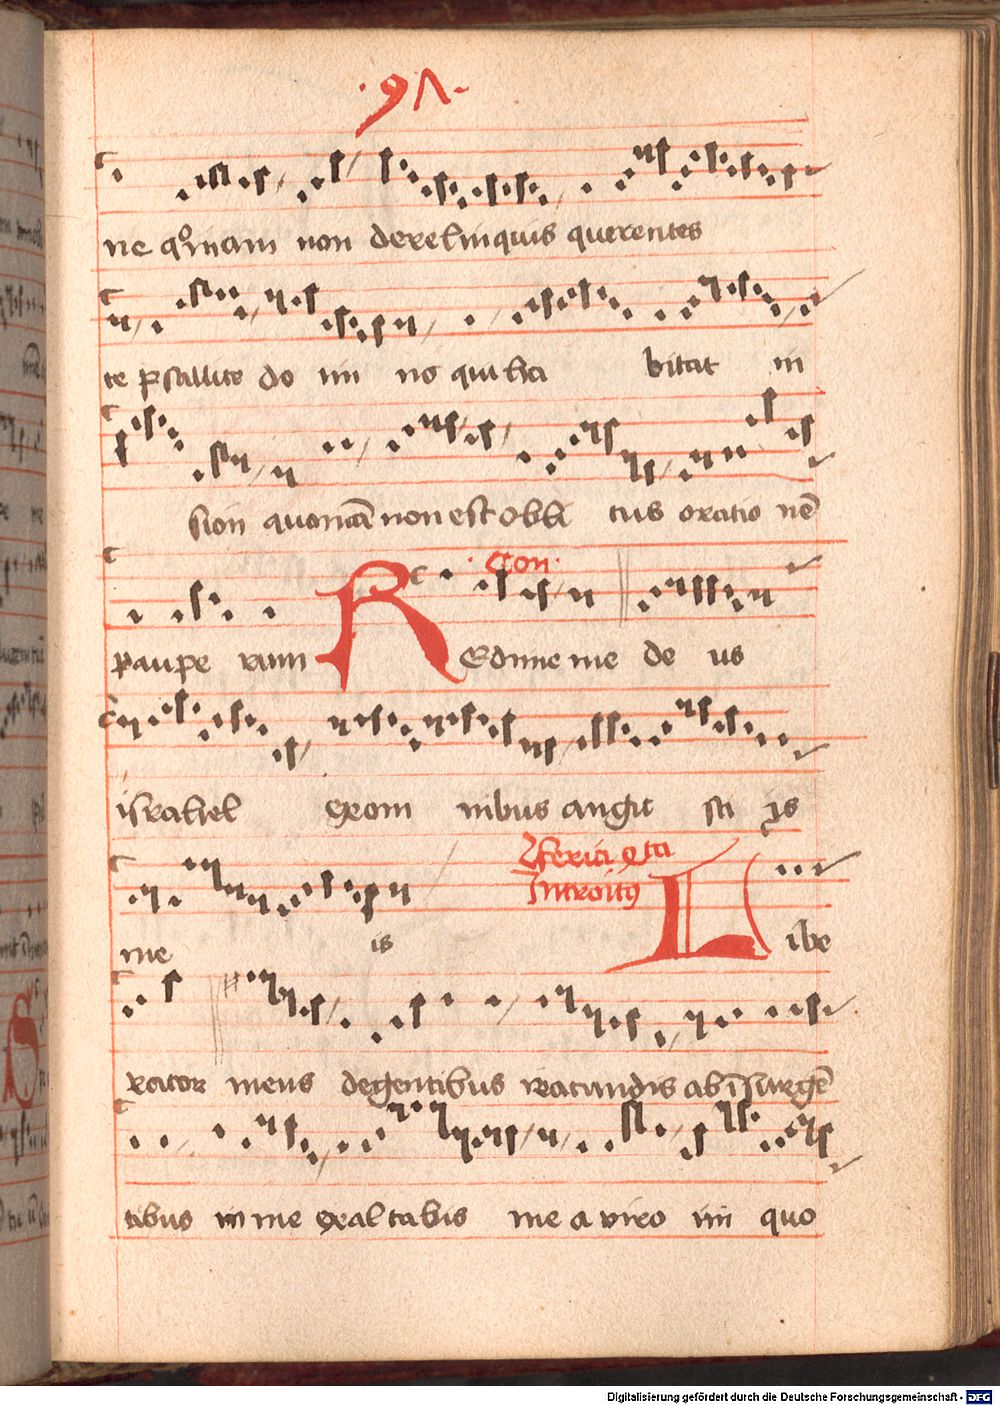 ·91·
ne qm̄nam non derelinquis querentes
te psallite do mi no qui ha bitat in
sion quoniā non est obli tus oratio nē
Con·
paupe rum REdime me de us
israhel exom nibus angu sti js
feria qta
Introitꝰ
me is Libe
rator meus degentibus iracundis ab īsurgē
tibus in me exaltabis me a viro ini quo
Digitalisierung gefördert durch die Deutsche Forschungsgemeinschaft - DFG